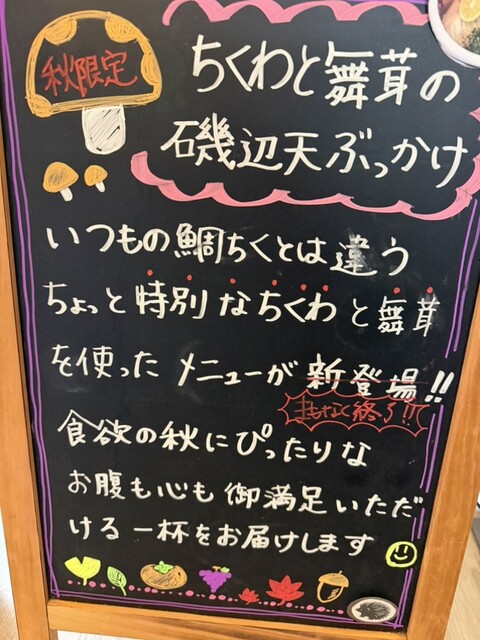 秋限定
ちくわと舞茸の
磯辺天ぶっかけ
いつもの鯛ちくとは違う
ちょっと特別なちくわと舞茸
を使ったメニューが新登場!!
まもなく終了!!
食欲の秋にぴったりな
お腹も心も御満足いただ
ける一杯をお届けします